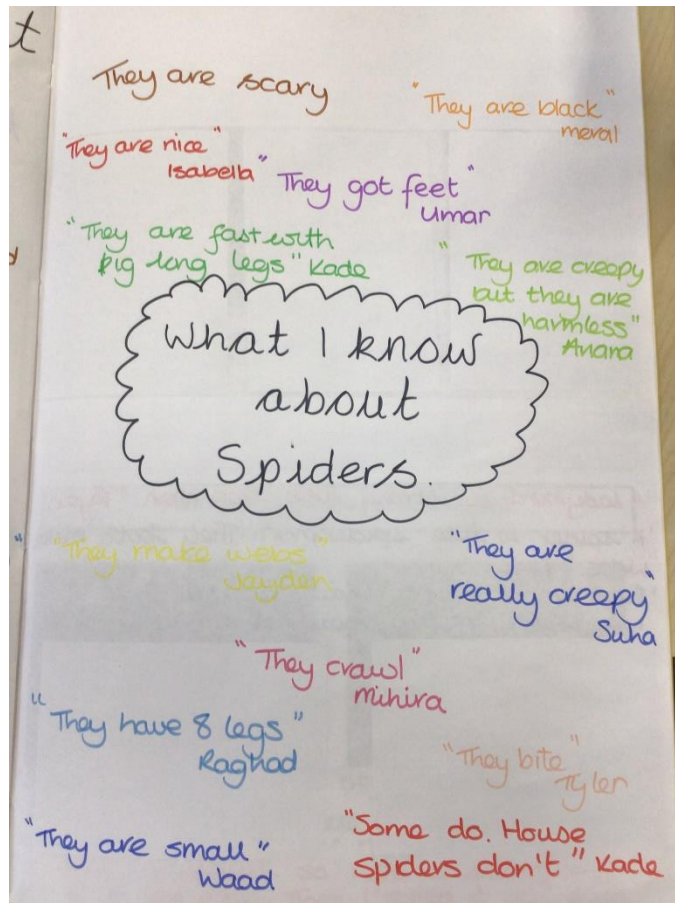 t
They are scary
"They are black"
meral
"They are nice"
Isabella
"They got feet"
Umar
"They are fast with
big long legs" Kade
"They are creepy
but they are
harmless"
Anara
What I know
about
Spiders.
"They make webs"
Jayden
"They are
really creepy"
Suha
"They crawl"
mihira
"They have 8 legs"
Raghad
"They bite"
Tyler
"They are small"
Waad
"Some do. House
spiders don't" Kade